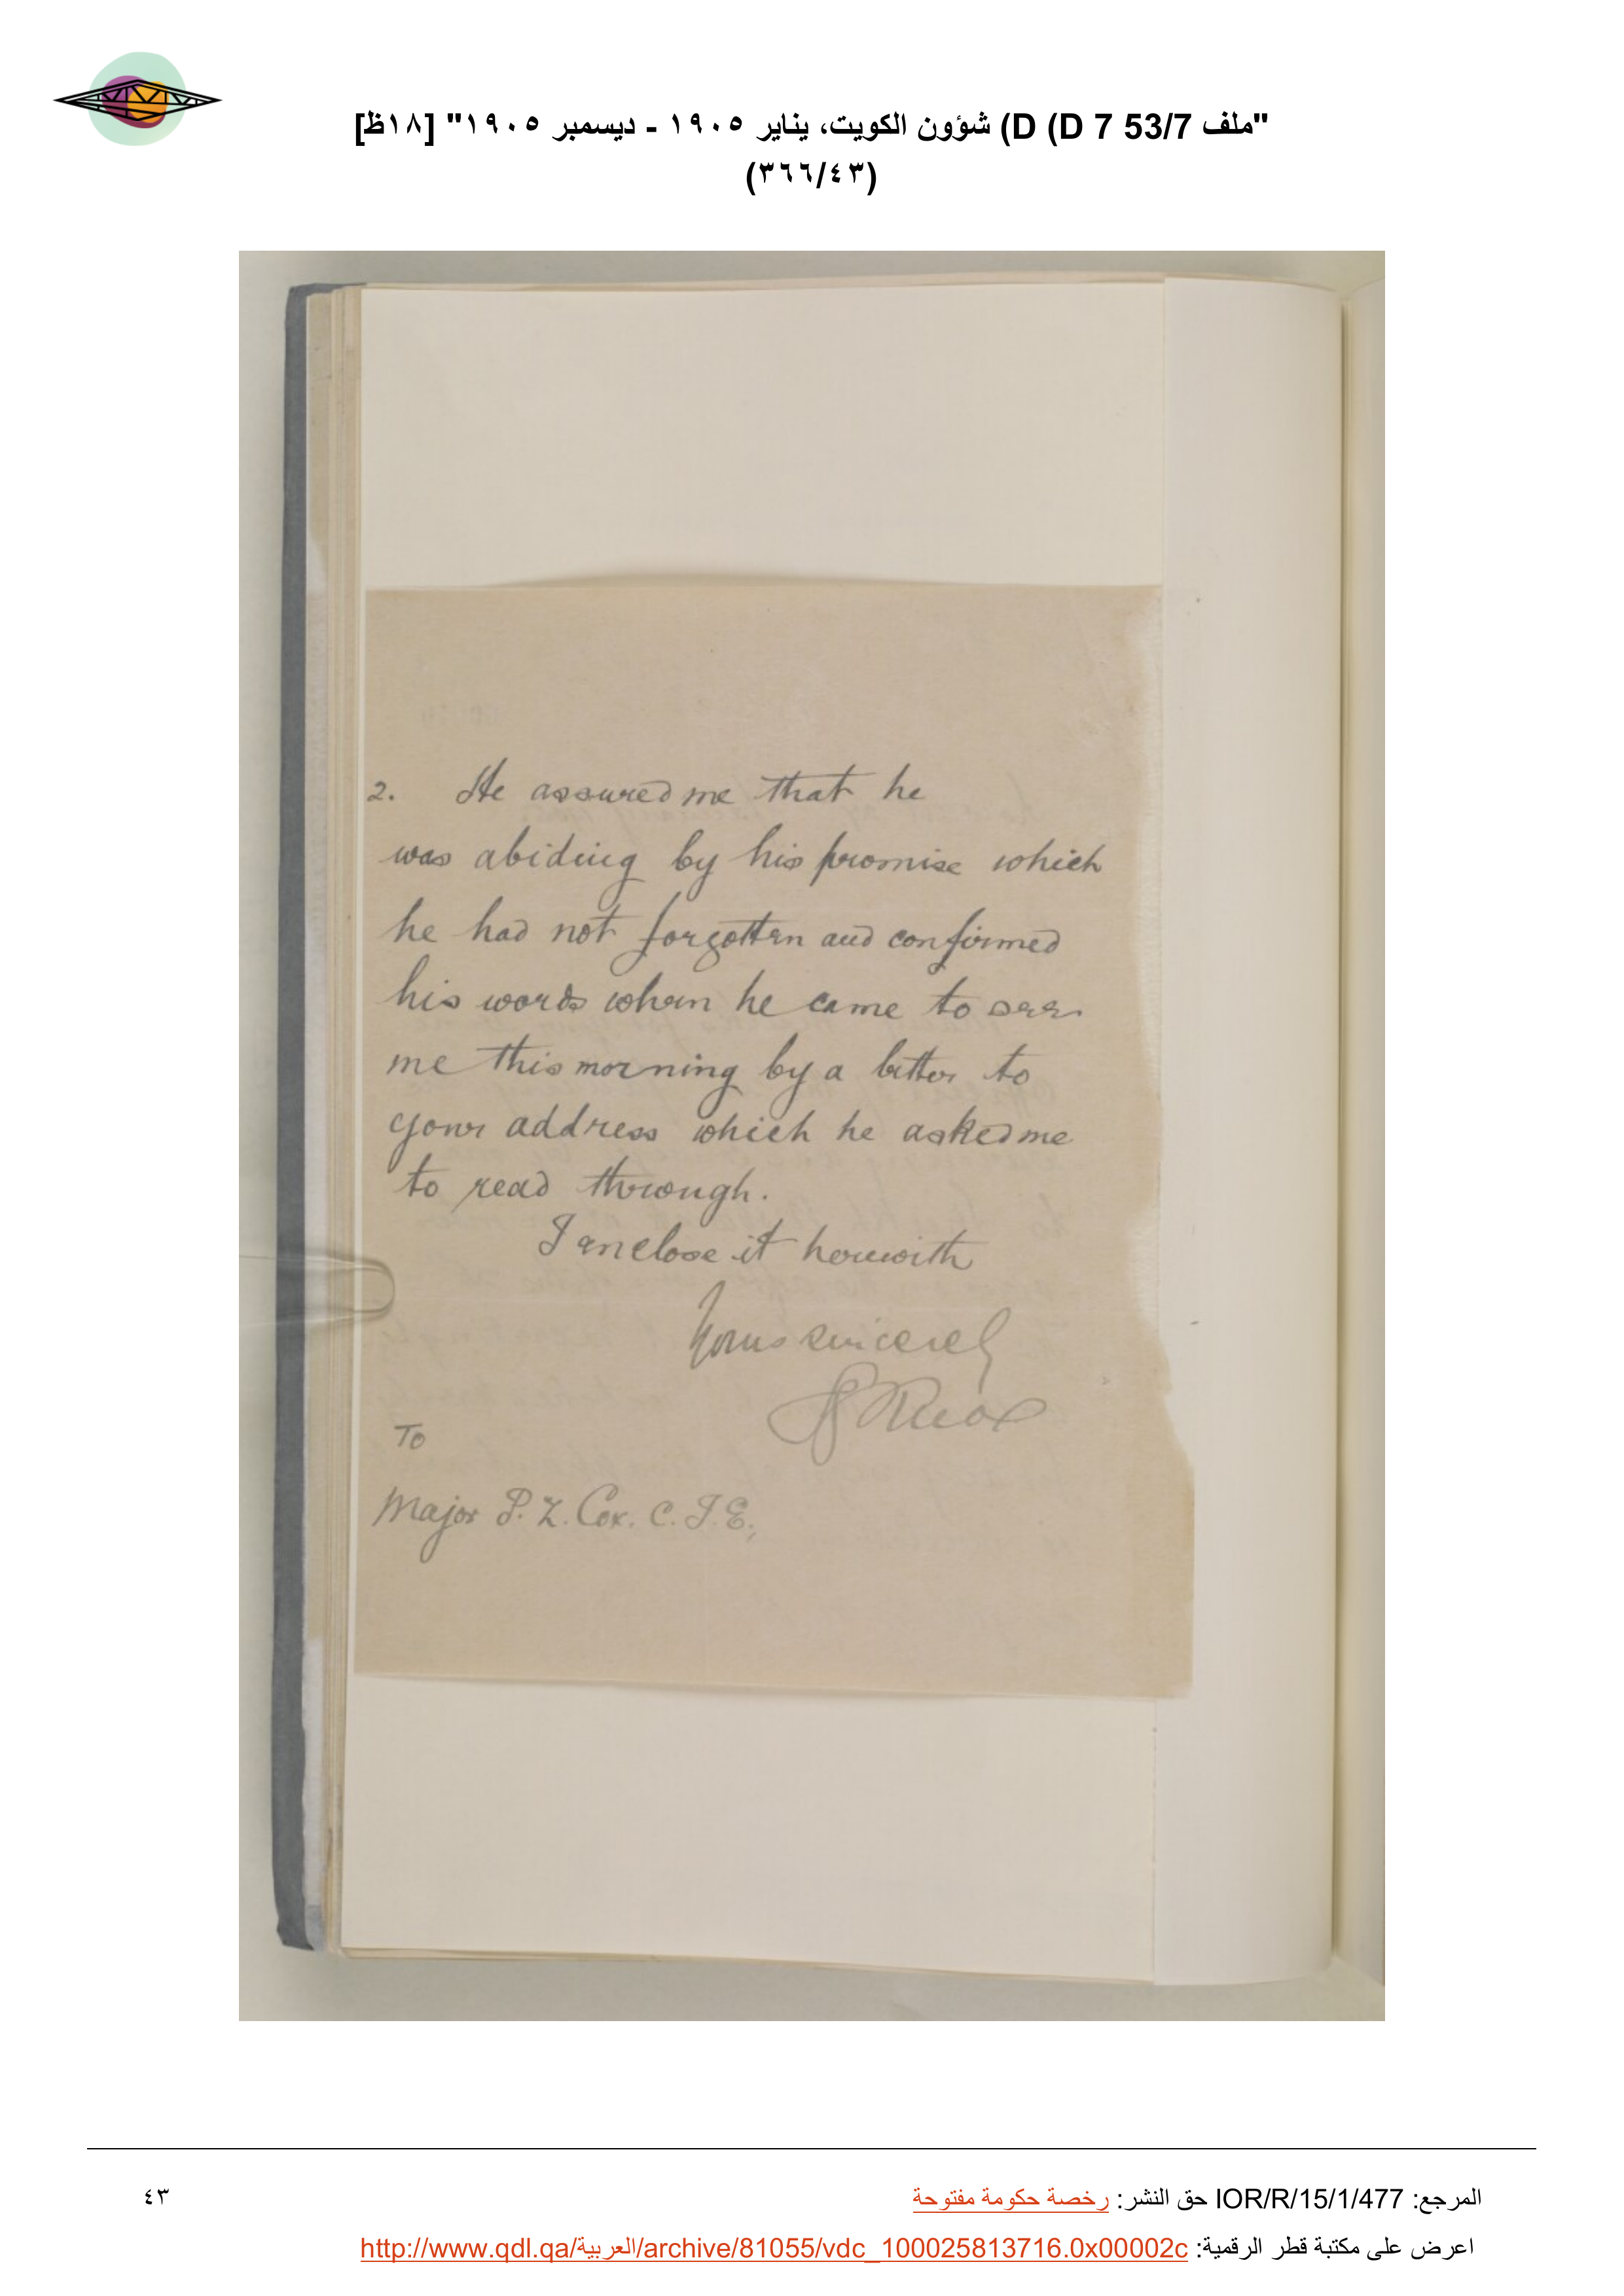 "ملف 53/7 D 7 D) شؤون الكويت، يناير ١٩٠٥ - ديسمبر ١٩٠٥" [١٨ظ]
(٣٦٦/٤٣)
2. He assured me that he
was abiding by his promise which
he had not forgotten and confirmed
his words when he came to see
me this morning by a letter to
your address which he asked me
to read through.
I enclose it herewith
Yours sincerely
SKnox
To
Major P. Z. Cox. C. I. E.,
المرجع: IOR/R/15/1/477 حق النشر: رخصة حكومة مفتوحة
٤٣
اعرض على مكتبة قطر الرقمية: http://www.qdl.qa/العربية/archive/81055/vdc_100025813716.0x00002c